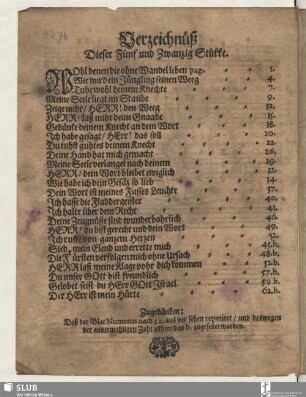 Verzeichnüß
Dieser Fünf und Zwanzig Stükke.
WOhl denen die ohne Wandel leben pag. 1.
Wie wird ein Jüngling seinen Weeg 4.
Tuhe wohl deinem Knechte 7.
Meine Seele liegt im Staube 9.
Zeige mihr / HERR / den Weeg 12.
HERR / laß mihr deine Gnaade 15.
Gedänke deinem Knecht an dein Wort 18.
Ich habe gesagt / Herr / das soll 20.
Du tuhst guhtes deinem Knecht 22.
Deine Hand hat mich gemacht 26.
Meine Seele verlanget nach deinem 29.
HERR / dein Wort bleibet ewiglich 32.
Wie habe ich dein Gesäz so lieb 34.
Dein Wort ist meines Fusses Leuchte 37.
Ich hasse die Fladdergeister 40.
Ich halte über dem Recht 41.
Deine Zeugnüsse sind wunderbahrlich 46.
HERR / du bist gerecht und dein Wort 49.
Ich ruffe von ganzem Herzen 52.
Sieh, mein Elend und errette mich 45.b.
Die Fürsten verfolgen mich ohne Ursach 48.b.
HERR laß meine Klage vohr dich kommen 52.b.
Du unser GOtt bist freundlich 57.b.
Gelobet seist du HErr GOtt Israel 59.b.
Der Herr ist mein Hürte 62.b.
Zugedänken:
Daß der Blat Numerus nach 52. aus versehen repetiret / und deswegen
der andermahligen Zahl alhier das b. zugesezet worden.
SLUB
Wir führen Wissen.